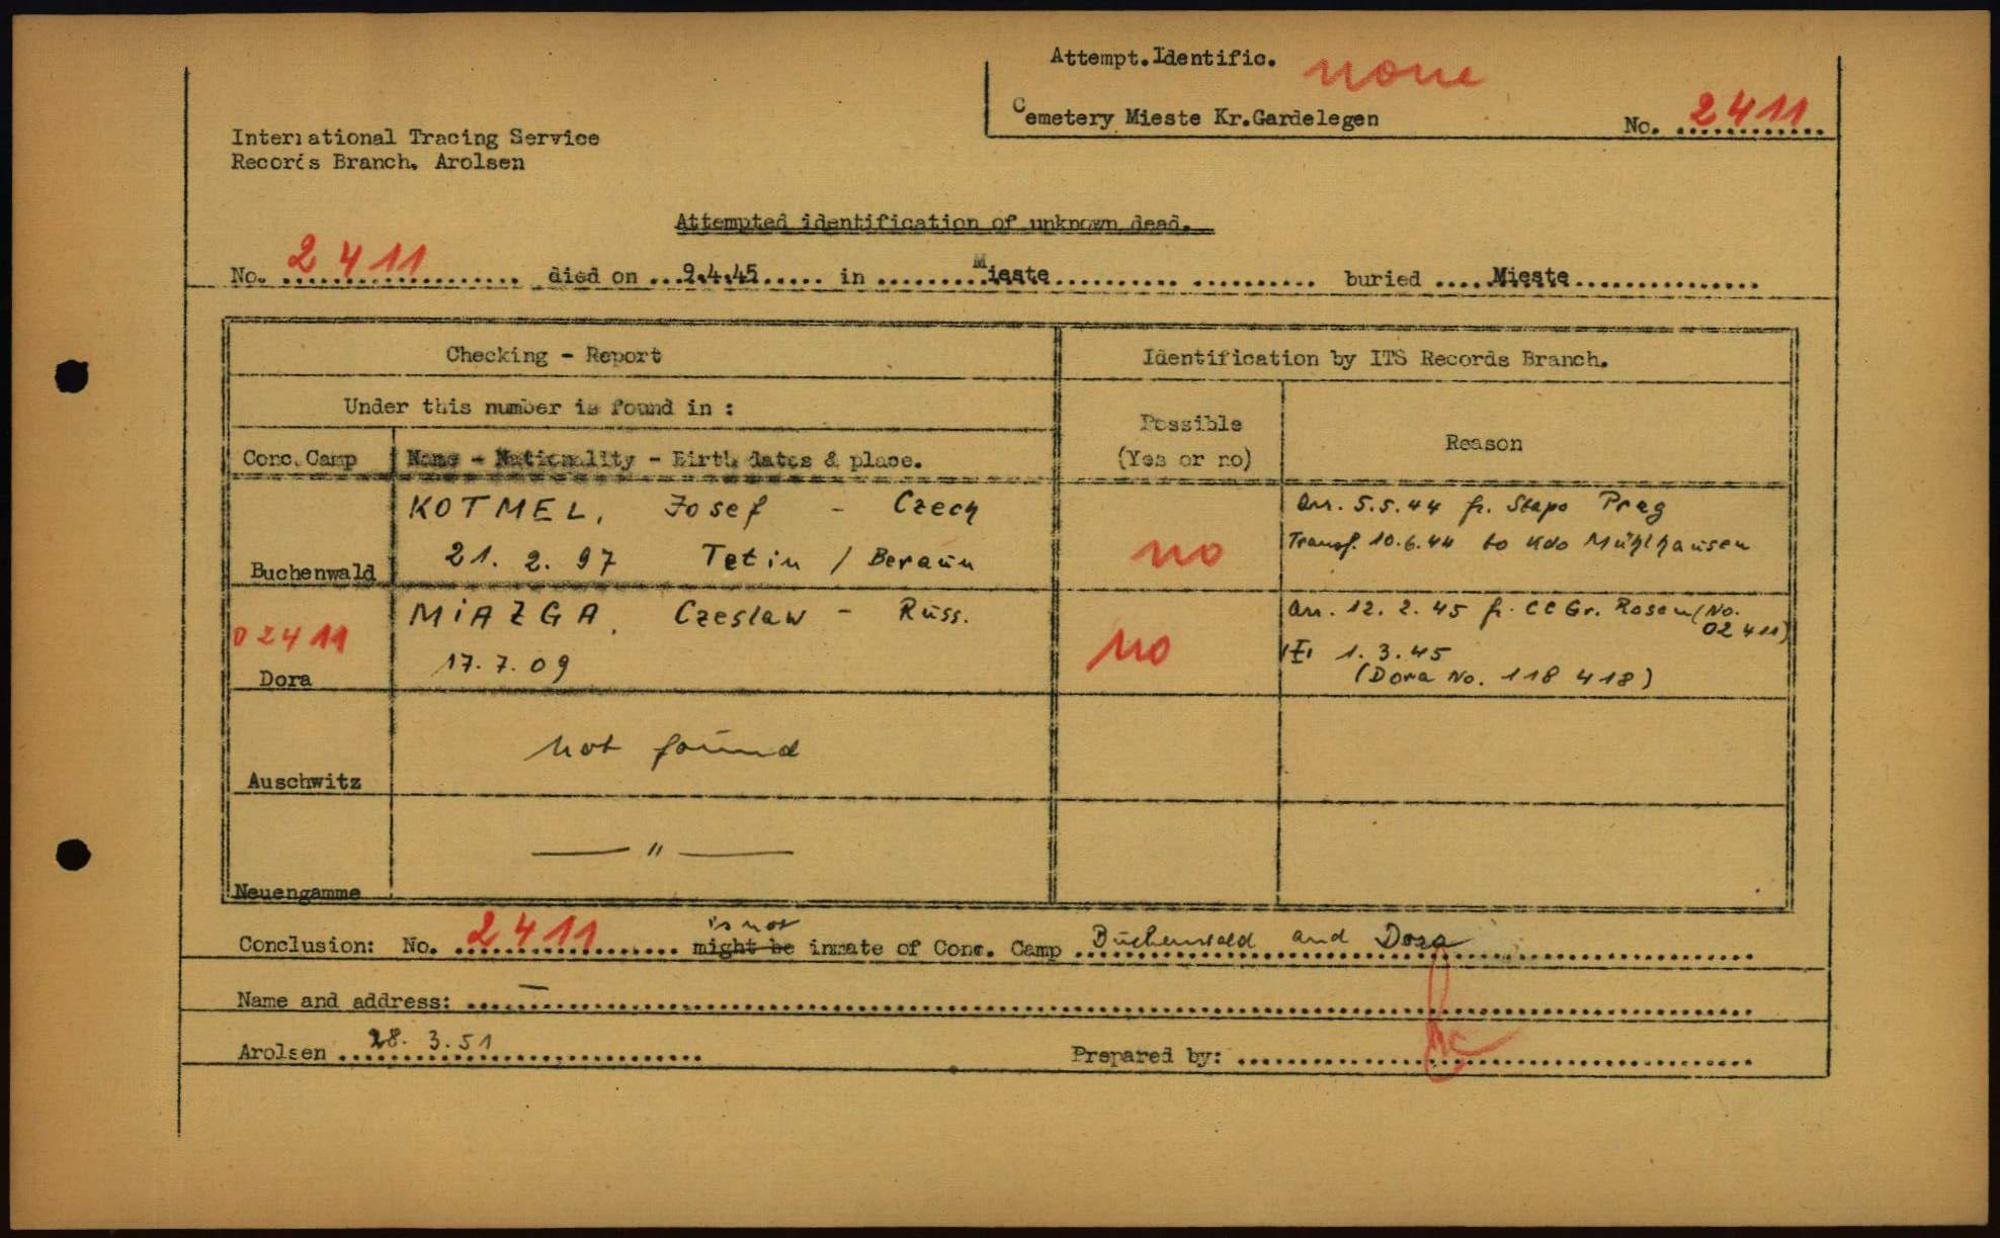 Attempt.Identific. none
Cemetery Mieste Kr.Gardelegen No. 2411
International Tracing Service
Records Branch, Arolsen
Attempted identification of unknown dead.
No. 2411 died on 9.4.45 in Mieste buried Mieste
Checking - Report
Identification by ITS Records Branch.
Under this number is found in :
Possible
(Yes or no)
Reason
Conc. Camp
Name - Nationality - Birth dates & place.
KOTMEL, Josef - Czech
21. 2. 97 Tetin / Beraun
Buchenwald
no
Arr. 5.5.44 fr. Stapo Prag
Transf. 10.6.44 to Kdo Mühlhausen
MIAZGA, Czeslaw - Russ.
17.7.09
02411
Dora
no
Arr. 12.2.45 fr. CC Gr. Rosen (No. 02411)
1.3.45
(Dora No. 118 418)
not found
Auschwitz
— " —
Neuengamme
is not
Conclusion: No. 2411 might be inmate of Conc. Camp Buchenwald and Dora
Name and address: —
Arolsen 28. 3.51 Prepared by: